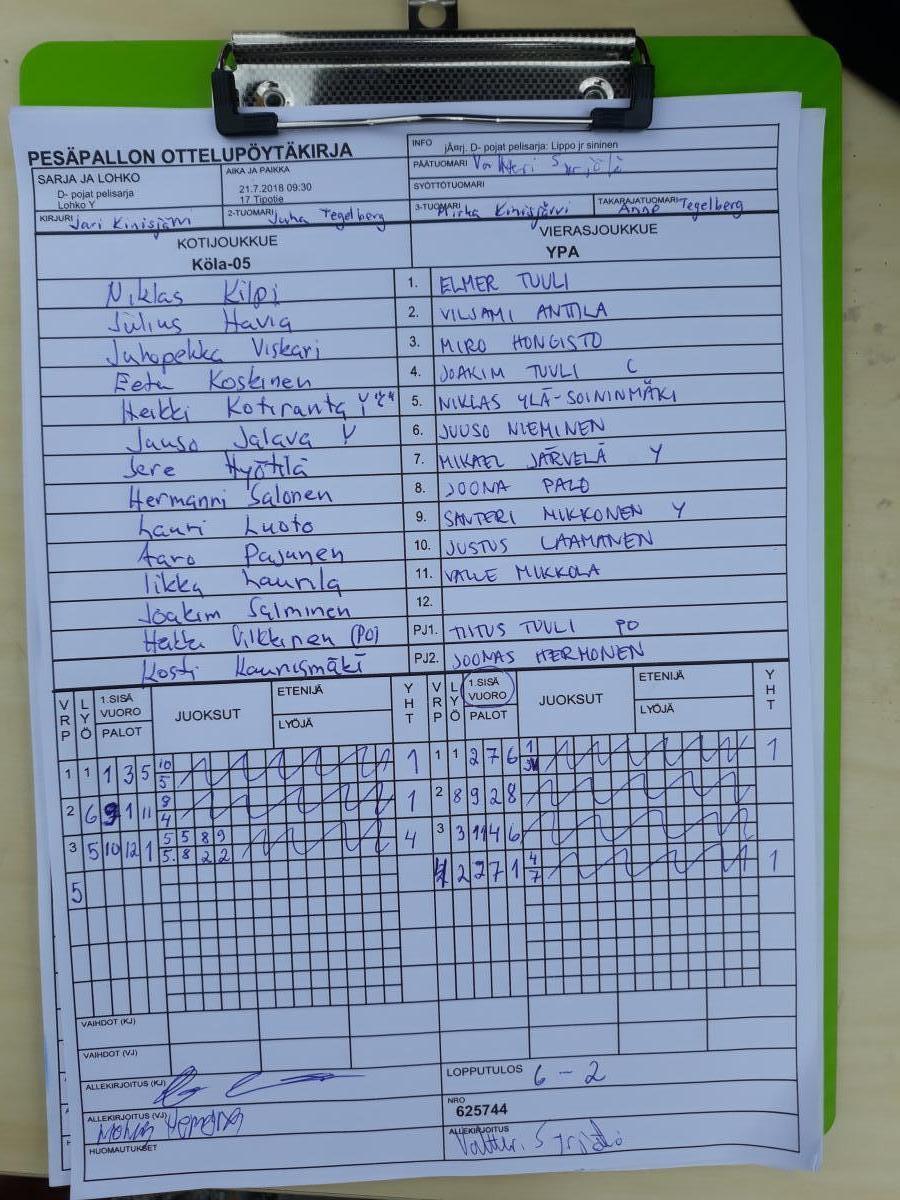 PESÄPALLON OTTELUPÖYTÄKIRJA
INFO jÄerj. D- pojat pelisarja: Lippo jr sininen
PÄÄTUOMARI
SYÖTTÖTUOMARI
SARJA JA LOHKO
D- pojat pelisarja
Lohko Y
AIKA JA PAIKKA
21.7.2018 09:30
17 Tipotie
KIRJURI Jari Kinisjärvi
2-TUOMARI Juha Tegelberg
3-TUOMARI Mirka Kinisjärvi
TAKARAJATUOMARI Anne Tegelberg
KOTIJOUKKUE
Köla-05
VIERASJOUKKUE
YPA
Niklas Kilpi 1. ELMER TUULI
Julius Havia 2. VILJAMI ANTTILA
Juhopekka Viskari 3. MIRO HONGISTO
Eetu Koskinen 4. JOAKIM TUULI C
Heikki Kotiranta 5. NIKLAS YLÄ-SOININMÄKI
Juuso Jalava Y 6. JUUSO NIEMINEN
Jere Hyötilä 7. MIKAEL JÄRVELÄ Y
Hermanni Salonen 8. JOONA PALO
Lauri Luoto 9. SANTERI MIKKONEN Y
Aaro Pajunen 10. JUSTUS LAAMANEN
Iikka Laurila 11. VALLE MUKKOLA
Joakim Salminen 12.
Vilkkinen (PO) PJ1. TIITUS TUULI PO
Kosti Kaunismäki PJ2. JOONAS HERMONEN
VRP LYÖ 1.SISÄ VUORO PALOT JUOKSUT ETENIJÄ LYÖJÄ YHT VRP LYÖ 1.SISÄ VUORO PALOT JUOKSUT ETENIJÄ LYÖJÄ YHT
1 1 1 3 5 10 5 1 1 1 2 7 6 1 1
2 6 9 1 11 9 4 1 2 8 9 2 8
3 5 10 12 1 5 5 8 9 5. 8 2 2 4 3 3 11 4 6
5 4 2 2 7 1 4 7 1
VAIHDOT (KJ)
VAIHDOT (VJ)
ALLEKIRJOITUS (KJ)
LOPPUTULOS 6 - 2
ALLEKIRJOITUS (VJ)
NRO
625744
HUOMAUTUKSET
ALLEKIRJOITUS